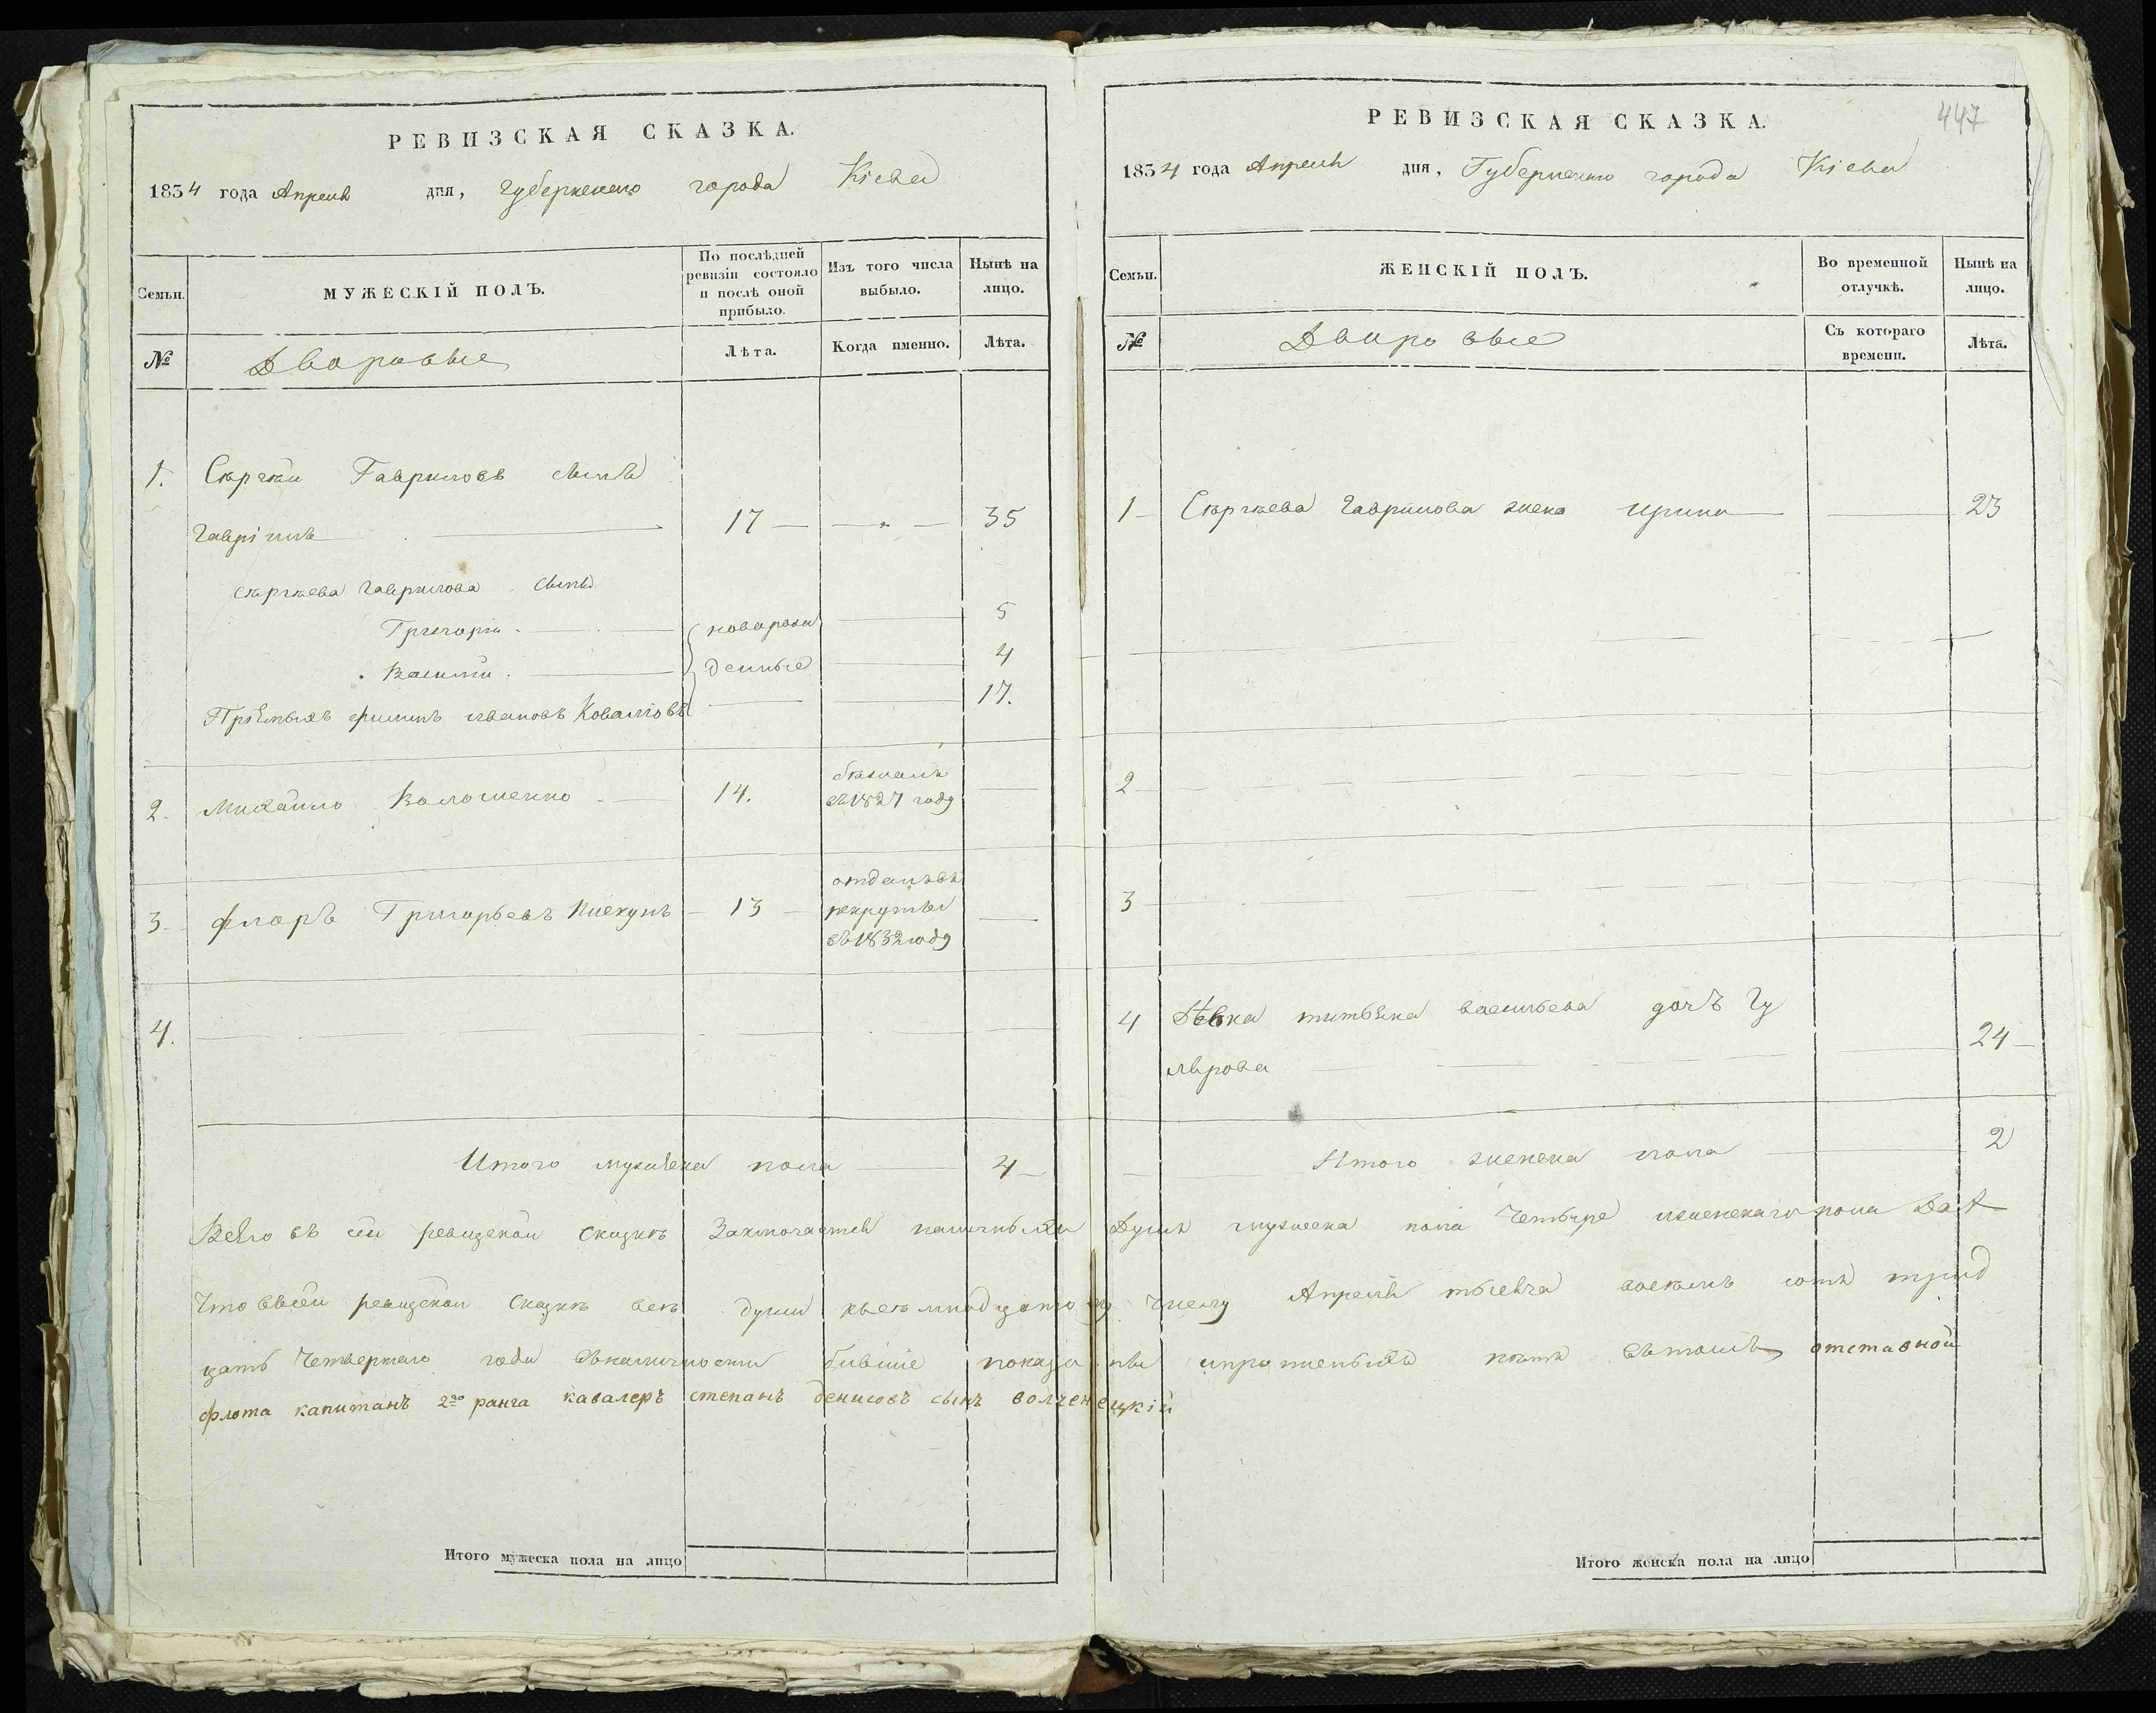 РЕВИЗСКАЯ СКАЗКА.
1834 года Апреля дня, Губернскаго города Кіева
Семьи.
МУЖЕСКІЙ ПОЛЪ.
По послѣдней ревизіи состояло и послѣ оной прибыло.
Изъ того числа выбыло.
Нынѣ на лицо.
№
Дворовые
Лѣта.
Когда именно.
Лѣта.
1. Сергѣй Гавриловъ сынъ
17 — 35
сергѣева гаврилова сынъ
Григорій новорож 5
Василій денные 4
Пріемышъ филипъ ивановъ 17.
2. михайло Волошенко 14. бѣжалъ
въ 1827 году
3. флоръ Григорьевъ 13 отданъ въ
рекруты
въ 1832 году
4.
Итого мужеска пола 4
РЕВИЗСКАЯ СКАЗКА.
447
1834 года Апреля дня, Губернскаго города Кіева
Семьи.
ЖЕНСКІЙ ПОЛЪ.
Во временной отлучкѣ.
Нынѣ на лицо.
№
Дворовые
Съ котораго времени.
Лѣта.
1 Сергѣева гаврилова жена ирина 23
2
3
4 Дѣвка васильева дочь Гу
24
лярова
Итого женска пола 2
Всего въ сей ревизской сказкѣ заключается наличныхъ Душъ мужеска пола Четыре женскаго пола Двѣ
Что въ сей ревизской сказкѣ всѣ души числу Апреля тысяча восемь сотъ трид
цать Четвертаго года въ наличности бывшіе показаны и пропшенныхъ нѣтъ въ томъ отставной
флота капитанъ 2го ранга кавалеръ степанъ денисовъ сынъ волченецкій
Итого мужеска пола на лицо
Итого женска пола на лицо